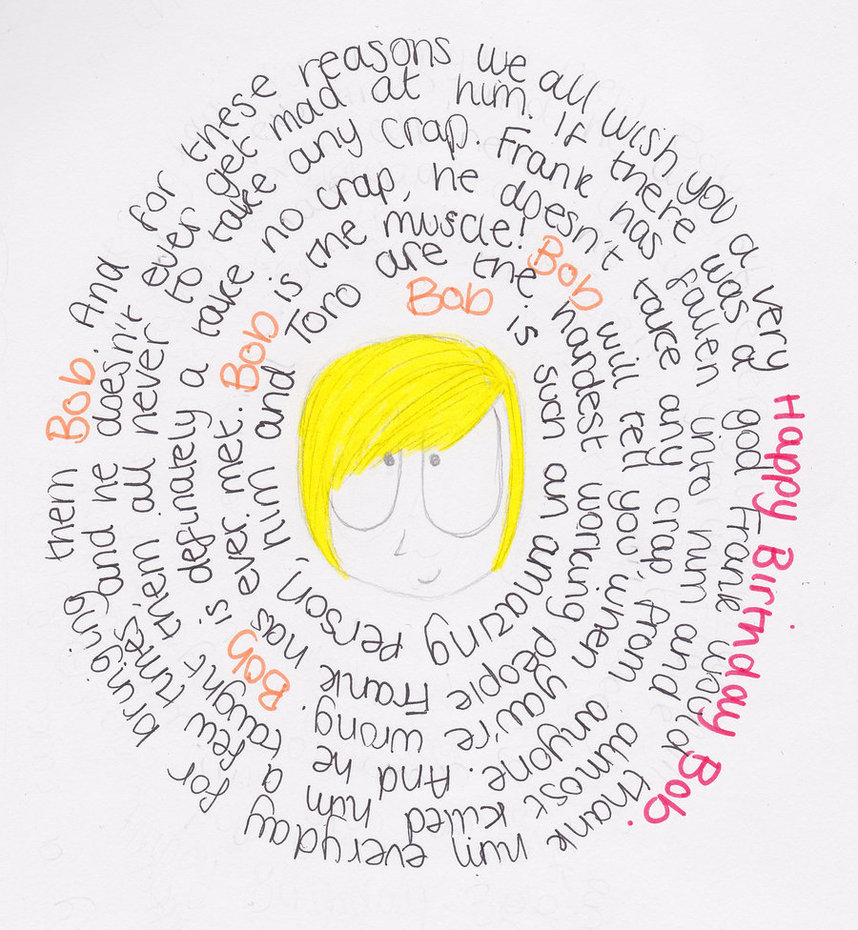 Bob is such an amazing person, him and Toro are the hardest working people Frank has ever met. Bob is the muscle! Bob will tell you when you're wrong. Bob is definately a take no crap, he doesn't take any crap from anyone. And he taught them all never to take any crap. Frank has fallen into him and almost killed him a few times, and he doesn't ever get mad at him. If there was a god Frank would thank him everyday for bringing them Bob. And for these reasons we all wish you a very Happy Birthday Bob.